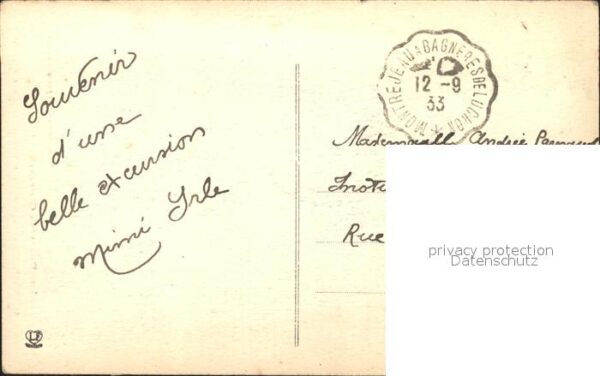 Souvenir
d'une
belle excursion
Mimi
MONTREJEAU A BAGNERES DE LUCHON
12 -9
33
Mademoiselle Andrée
Rue
privacy protection
Datenschutz